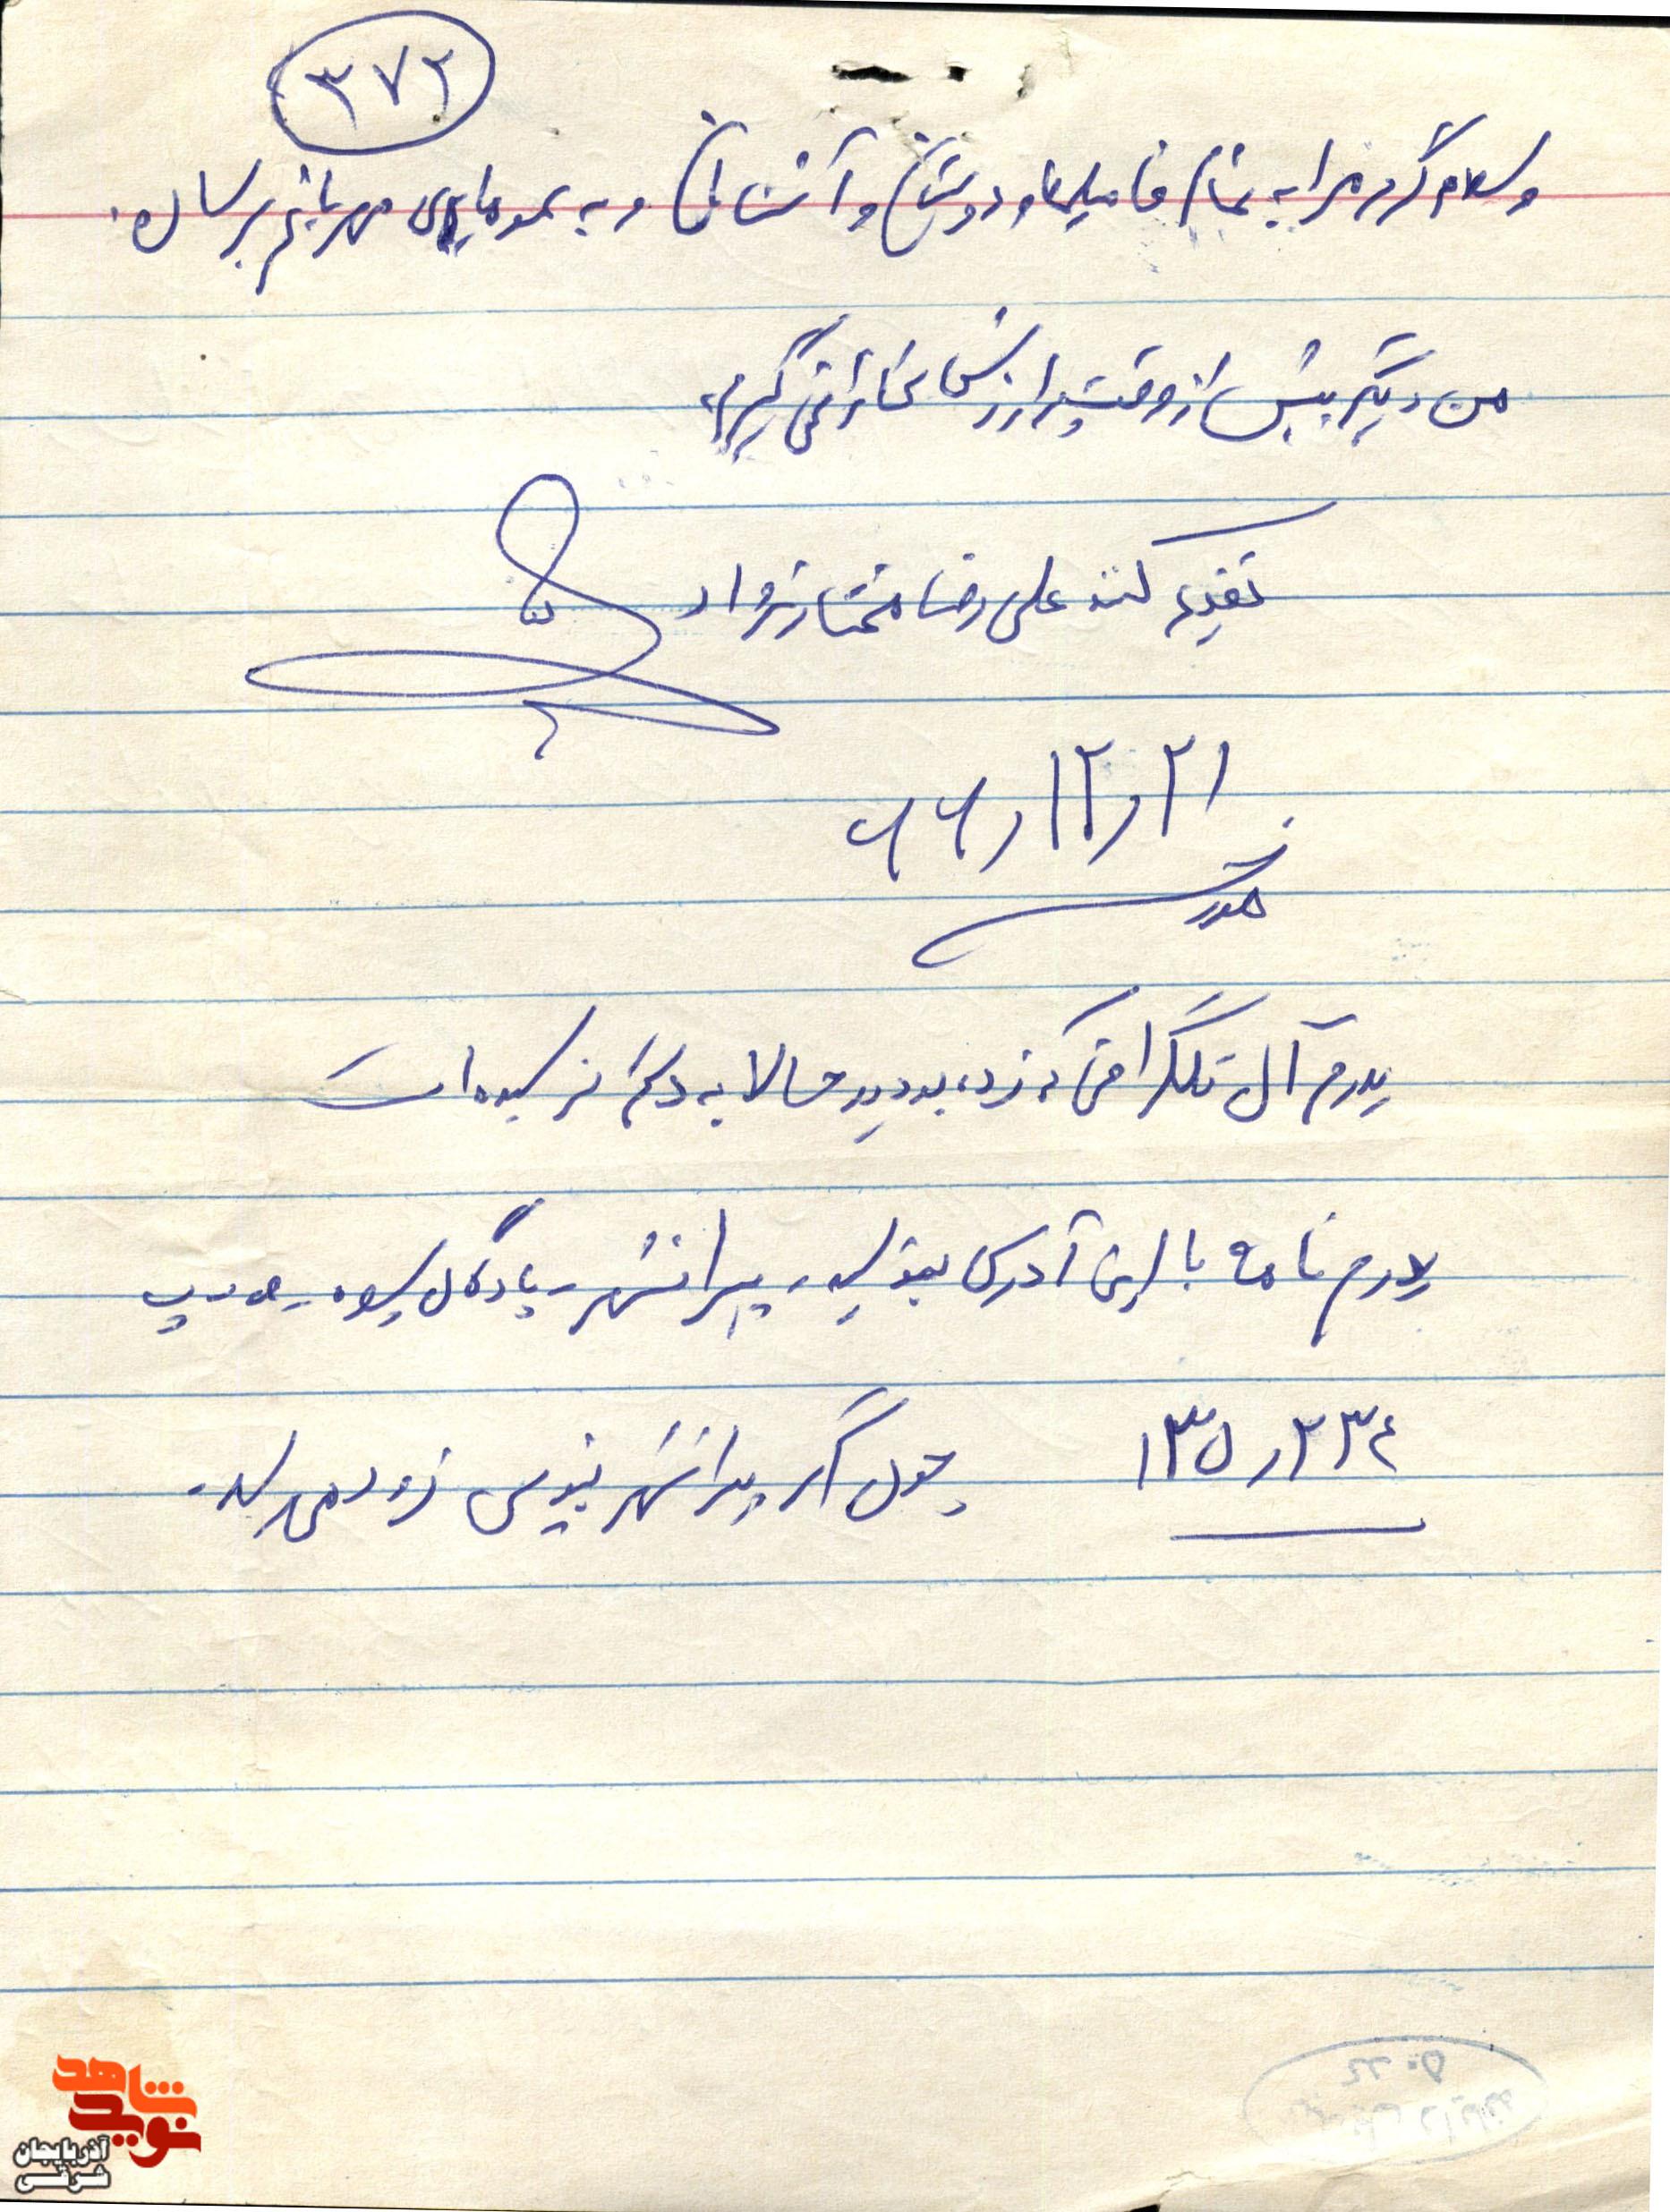 ۳۷۲
و سلام گرم مرا به تمام فامیلها و دوستان و آشنایان و به عموهای مهربانم برسان.
من دیگر بیش از وقت پرارزش شما را نمی گیرم،
تقدیم کننده علی رضا مختارنژاد
۲۱ر۱۲ر۶۶
پدرم آن تلگرافی که زده بودید حالا به دستم نرسیده است
پدرم نامه با این آدرس بنویسید، پیرانشهر - پادگان پسوه - ص-پ
۱۳۵ر۲۳۴ چون اگر پیرانشهر بنویسی زود می رسد.
شاهد
نوید
آذربایجان
شرقی